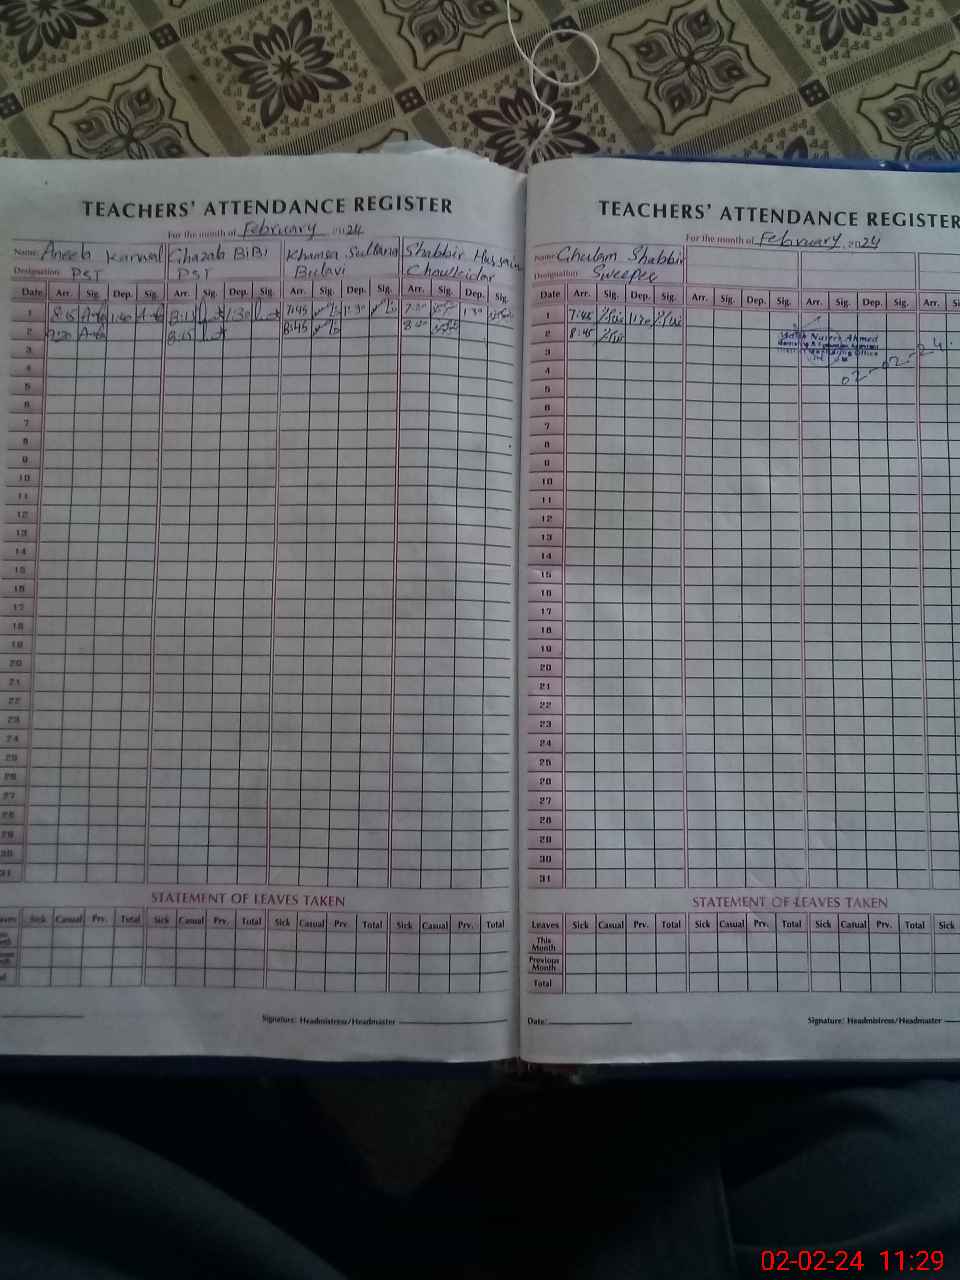 TEACHERS' ATTENDANCE REGISTER
For the month of February 2024
Name: Aneeb Kanwal Ghazab BiBi Khansa Sultana Shabbir Hussain
Designation PST PST Bulavi Chowkidar
Date Arr. Sig. Dep. Sig. Arr. Sig. Dep. Sig. Arr. Sig. Dep. Sig. Arr. Sig. Dep. Sig.
1 8:15 1:40 8:15 1:30 7:45 1:30 7:30 1:30
2 8:15 8:45
3
4
5
6
7
8
9
10
11
12
13
14
15
16
17
18
19
20
21
22
23
24
25
26
27
28
29
30
31
STATEMENT OF LEAVES TAKEN
Sick Casual Prv. Total Sick Casual Prv. Total Sick Casual Prv. Total Sick Casual Prv. Total
Signature: Headmistress/Headmaster
TEACHERS' ATTENDANCE REGISTER
For the month of February, 2024
Name: Ghulam Shabbir
Designation Sweeper
Date Arr. Sig. Dep. Sig. Arr. Sig. Dep. Sig. Arr. Sig. Dep. Sig. Arr. Sig.
1 7:45
2 8:45
Ahmed
02-02-24.
3
4
5
6
7
8
9
10
11
12
13
14
15
16
17
18
19
20
21
22
23
24
25
26
27
28
29
30
31
STATEMENT OF LEAVES TAKEN
Leaves Sick Casual Prv. Total Sick Casual Prv. Total Sick Casual Prv. Total Sick
This Month
Previous Month
Total
Date: Signature: Headmistress/Headmaster
02-02-24 11:29